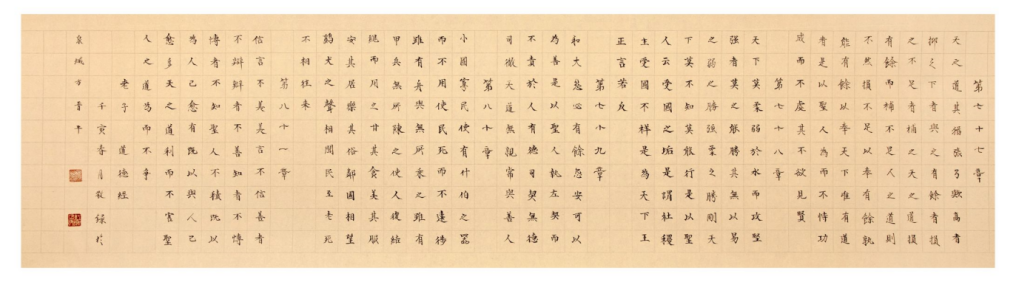 第七十七章
天之道其猶張弓歟高者
抑之下者與之有餘者損
之不足者補之天之道損
有餘而補不足人之道則
不然損不足以奉有餘孰
能有餘以奉天下唯有道
者是以聖人為而不恃功
成而不處其不欲見賢
第七十八章
天下莫柔弱於水而攻堅
強者莫之能勝其無以易
之弱之勝強柔之勝剛天
下莫不知莫能行是以聖
人云受國之垢是謂社稷
主受國不祥是為天下王
正言若反
第七十九章
和大怨必有餘怨安可以
為善是以聖人執左契而
不責於人有德司契無德
司徹天道無親常與善人
第八十章
小國寡民使有什伯之器
而不用使民死而不遠徙
雖有舟輿無所乘之雖有
甲兵無所陳之使人復結
繩而用之甘其食美其服
安其居樂其俗鄰國相望
雞犬之聲相聞民至老死
不相往來
第八十一章
信言不美美言不信善者
不辯辯者不善知者不博
博者不知聖人不積既以
為人己愈有既以與人己
愈多天之道利而不害聖
人之道為而不爭
老子道德經
壬寅春月敬錄於
泉城